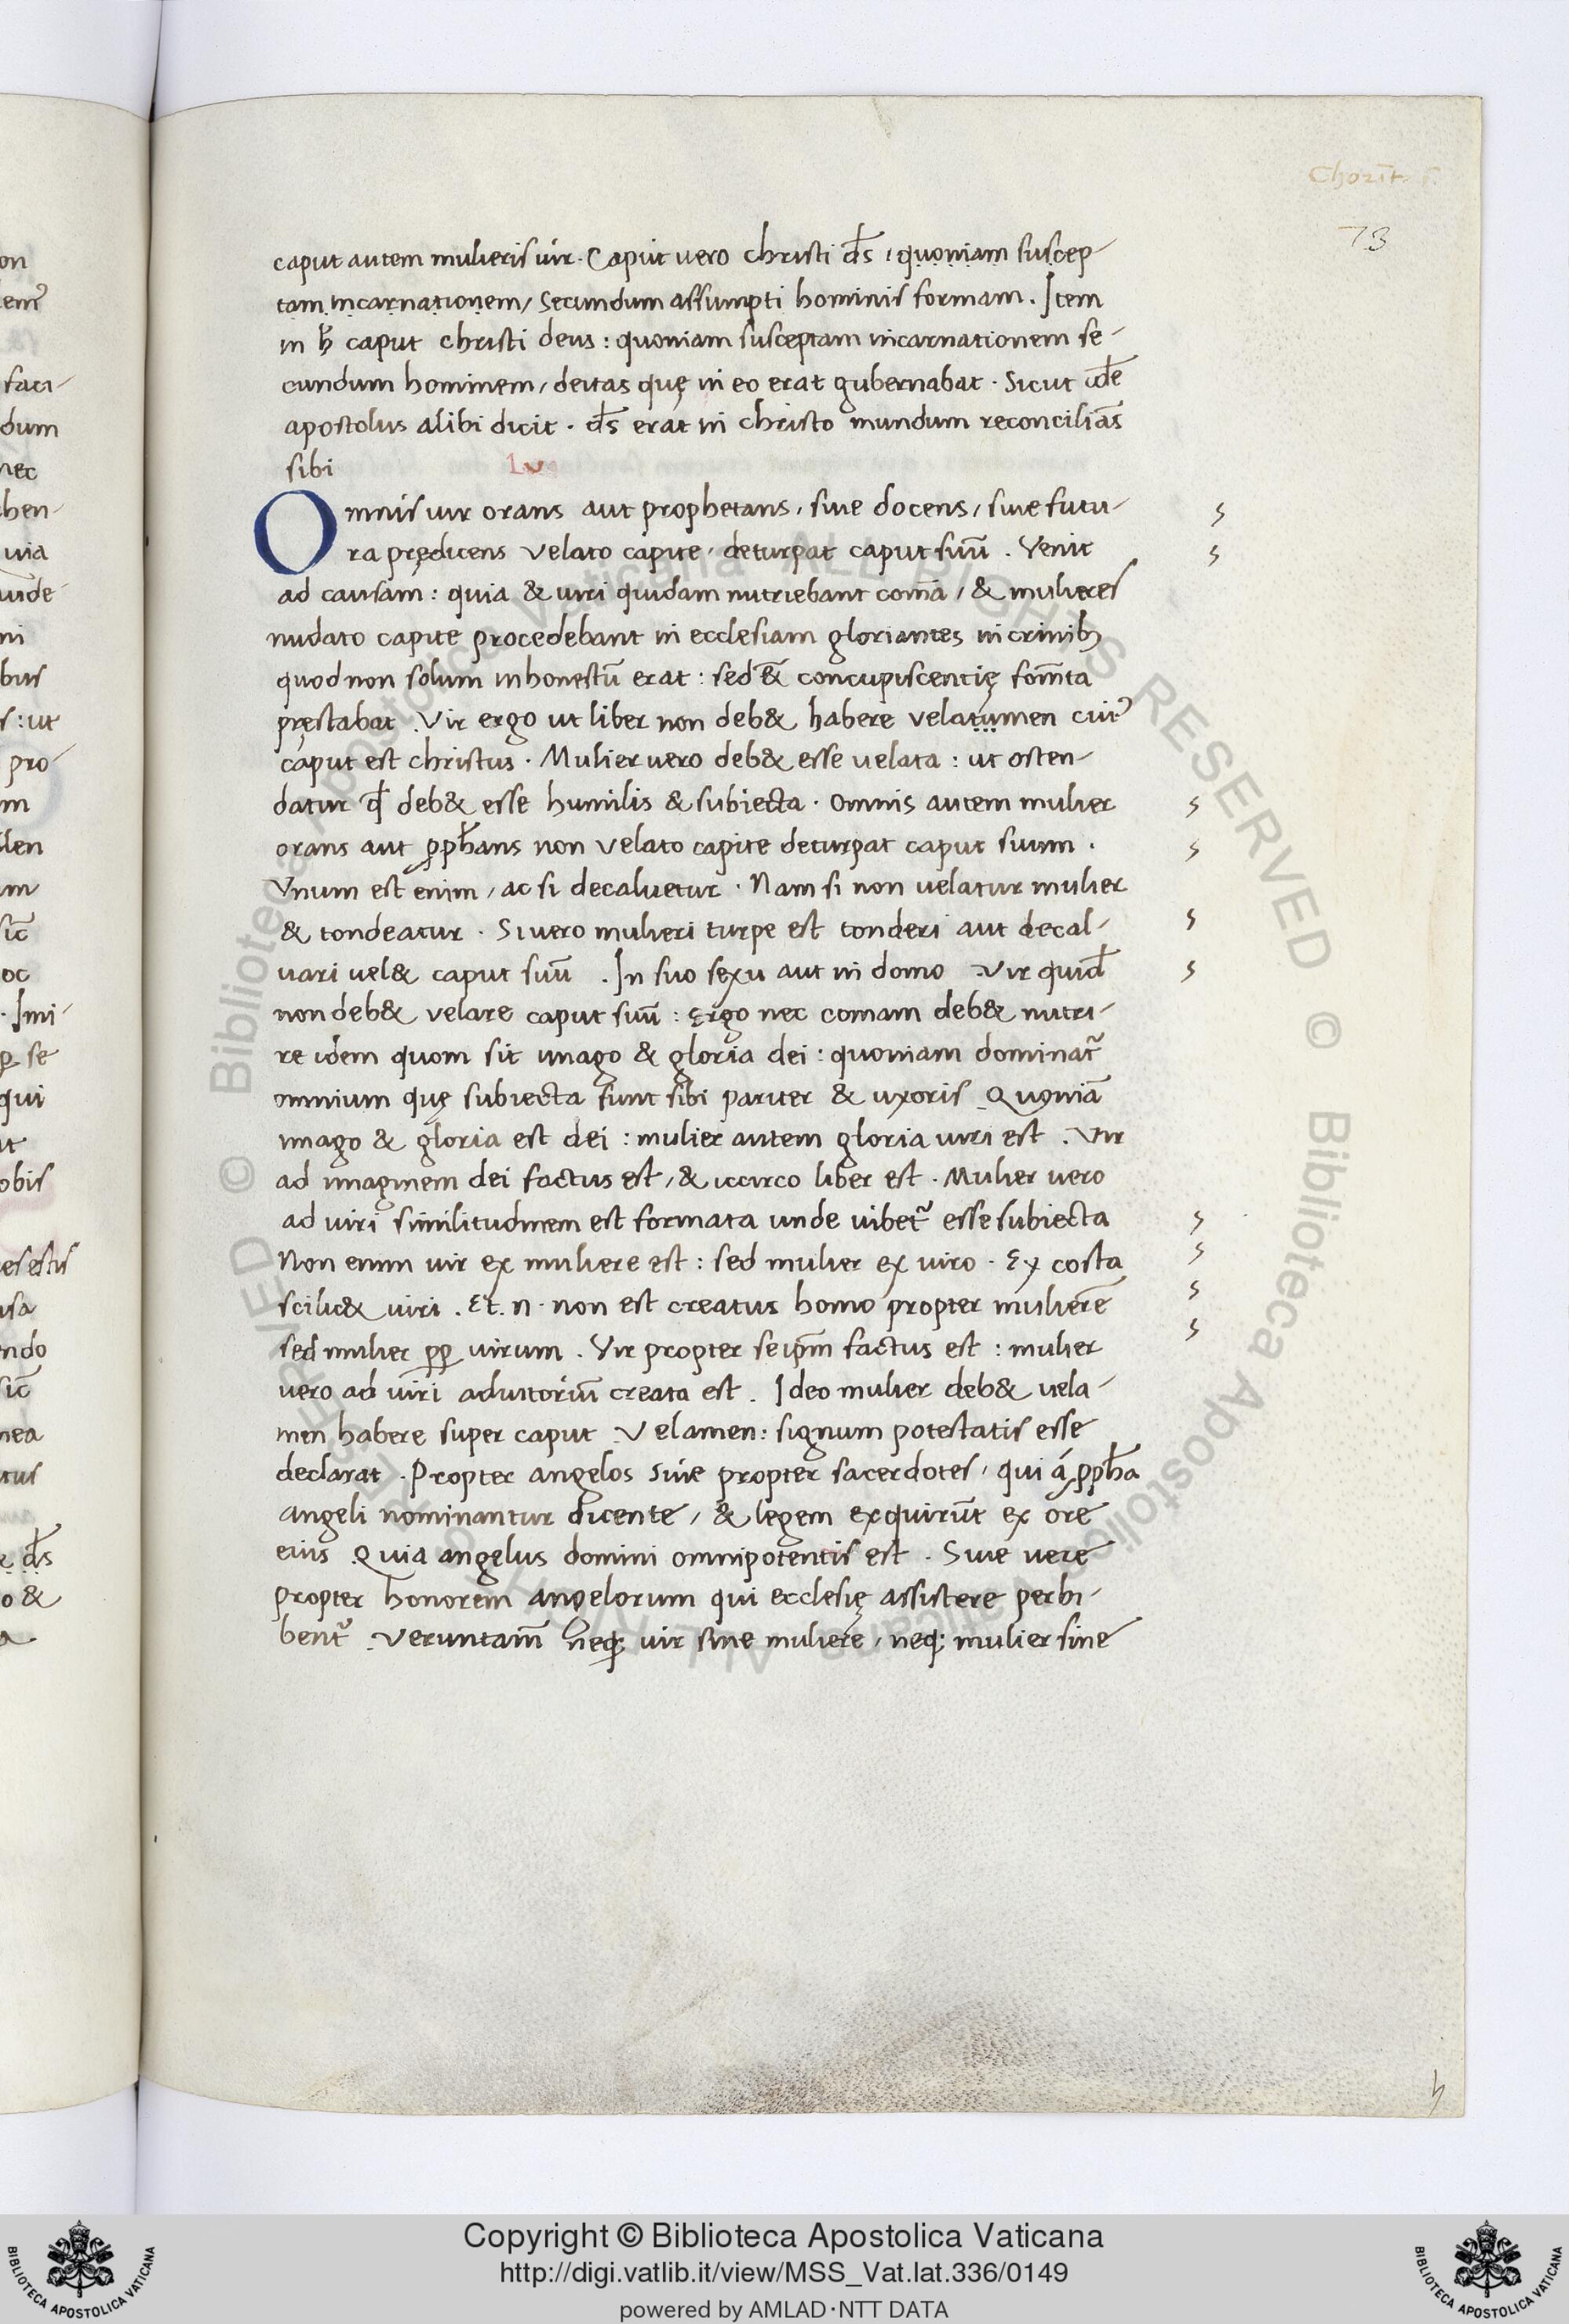 Chorīt.
73
caput autem mulieris uir. Caput uero christi d̄s : quoniam suscep-
tam incarnationem, secundum assumpti hominis formam. Item
in h̄ caput christi deus : quoniam susceptam incarnationem se-
cundum hominem, deitas quę in eo erat gubernabat. Sicut idē
apostolus alibi dicit. d̄s erat in christo mundum reconciliās
sibi
Lv
Omnis uir orans aut prophetans, siue docens, siue futu-
ra prędicens velato capite, deturpat caput suū. Venit
ad causam : quia & uiri quidam nutriebant comā, & mulieres
nudato capite procedebant in ecclesiam gloriantes in crinibꝫ
quod non solum inhonestū erat : sed &̄ concupiscentię fom̄ta
pręstabat. Vir ergo ut liber non deb& habere velatumen cui⁹
caput est christus. Mulier uero deb& esse uelata : ut osten-
datur qd̄ deb& esse humilis & subiecta. Omnis autem mulier
orans aut ꝓph̄ans non velato capite deturpat caput suum.
Vnum est enim, ac si decaluetur. Nam si non uelatur mulier
& tondeatur. Si uero mulieri turpe est tonderi aut decal-
uari uel& caput suū. In suo sexu aut in domo. Vir quid̄
non deb& velare caput suū : Ergo nec comam deb& nutri-
re idem quom sit imago & gloria dei : quoniam dominat̄
omnium quę subiecta sunt sibi pariter & uxoris. Quoniā
imago & gloria est dei : mulier autem gloria uiri est. Vir
ad imaginem dei factus est, & iccirco liber est. Mulier uero
ad uiri similitudinem est formata unde uibet̄ esse subiecta
Non enim uir ex muliere est : sed mulier ex viro. Ex costa
scilic& uiri. Et. n. non est creatus homo propter mulierē
sed mulier ꝓꝑ uirum. Vir propter seip̄m factus est : mulier
uero ad uiri adiutoriū creata est. Ideo mulier deb& uela-
men habere super caput. Velamen : signum potestatis esse
declarat. Propter angelos siue propter sacerdotes, qui á ꝓph̄a
angeli nominantur dicente, & legem exquirūt ex ore
eius. Quia angelus domini omnipotentis est. Siue uere
propter honorem angelorum qui ecclesię assistere perhi-
bent̄. Veruntam̄ neqꝫ uir sine muliere, neqꝫ mulier sine
h
Copyright © Biblioteca Apostolica Vaticana
http://digi.vatlib.it/view/MSS_Vat.lat.336/0149
powered by AMLAD·NTT DATA